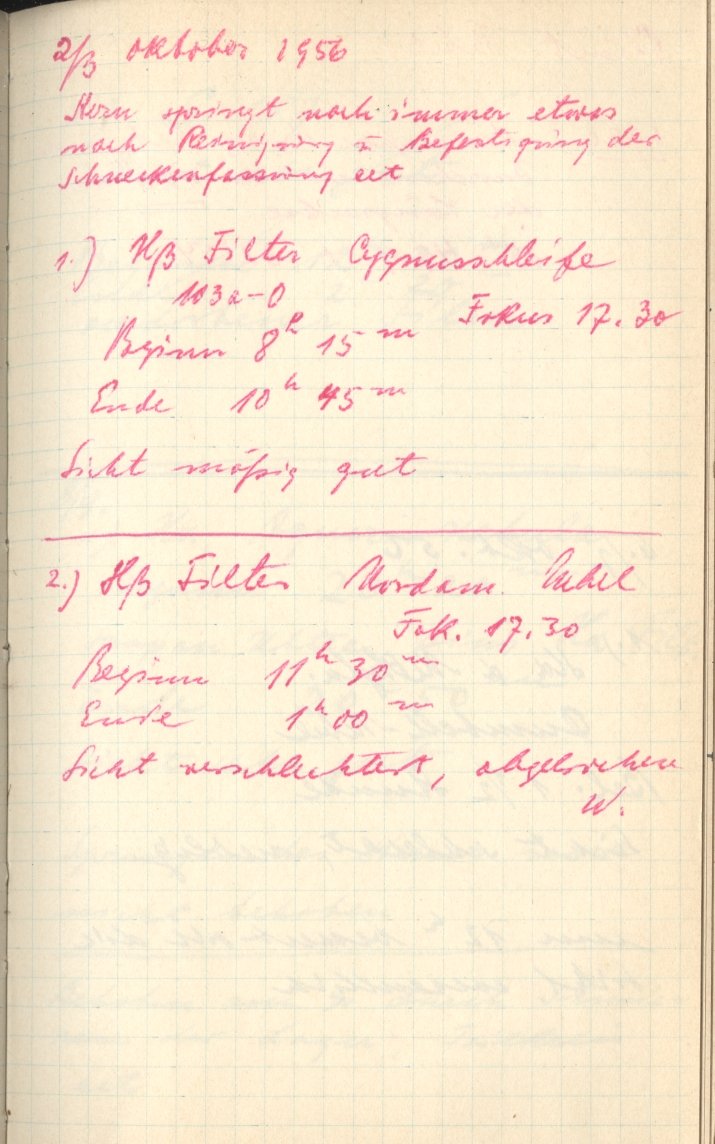 2/3 Oktober 1956
springt noch immer etwas
nach Reinigung u Befestigung der
Schneckenfassung
1.) Hβ Filter Cygnusschleife
103a-O
Fokus 17.30
Beginn 8h 15m
Ende 10h 45m
Sicht mäßig gut
2.) Hβ Filter Nordam. Nebel
Fok. 17.30
Beginn 11h 30m
Ende 1h 00m
Sicht verschlechtert, abgebrochen
W.